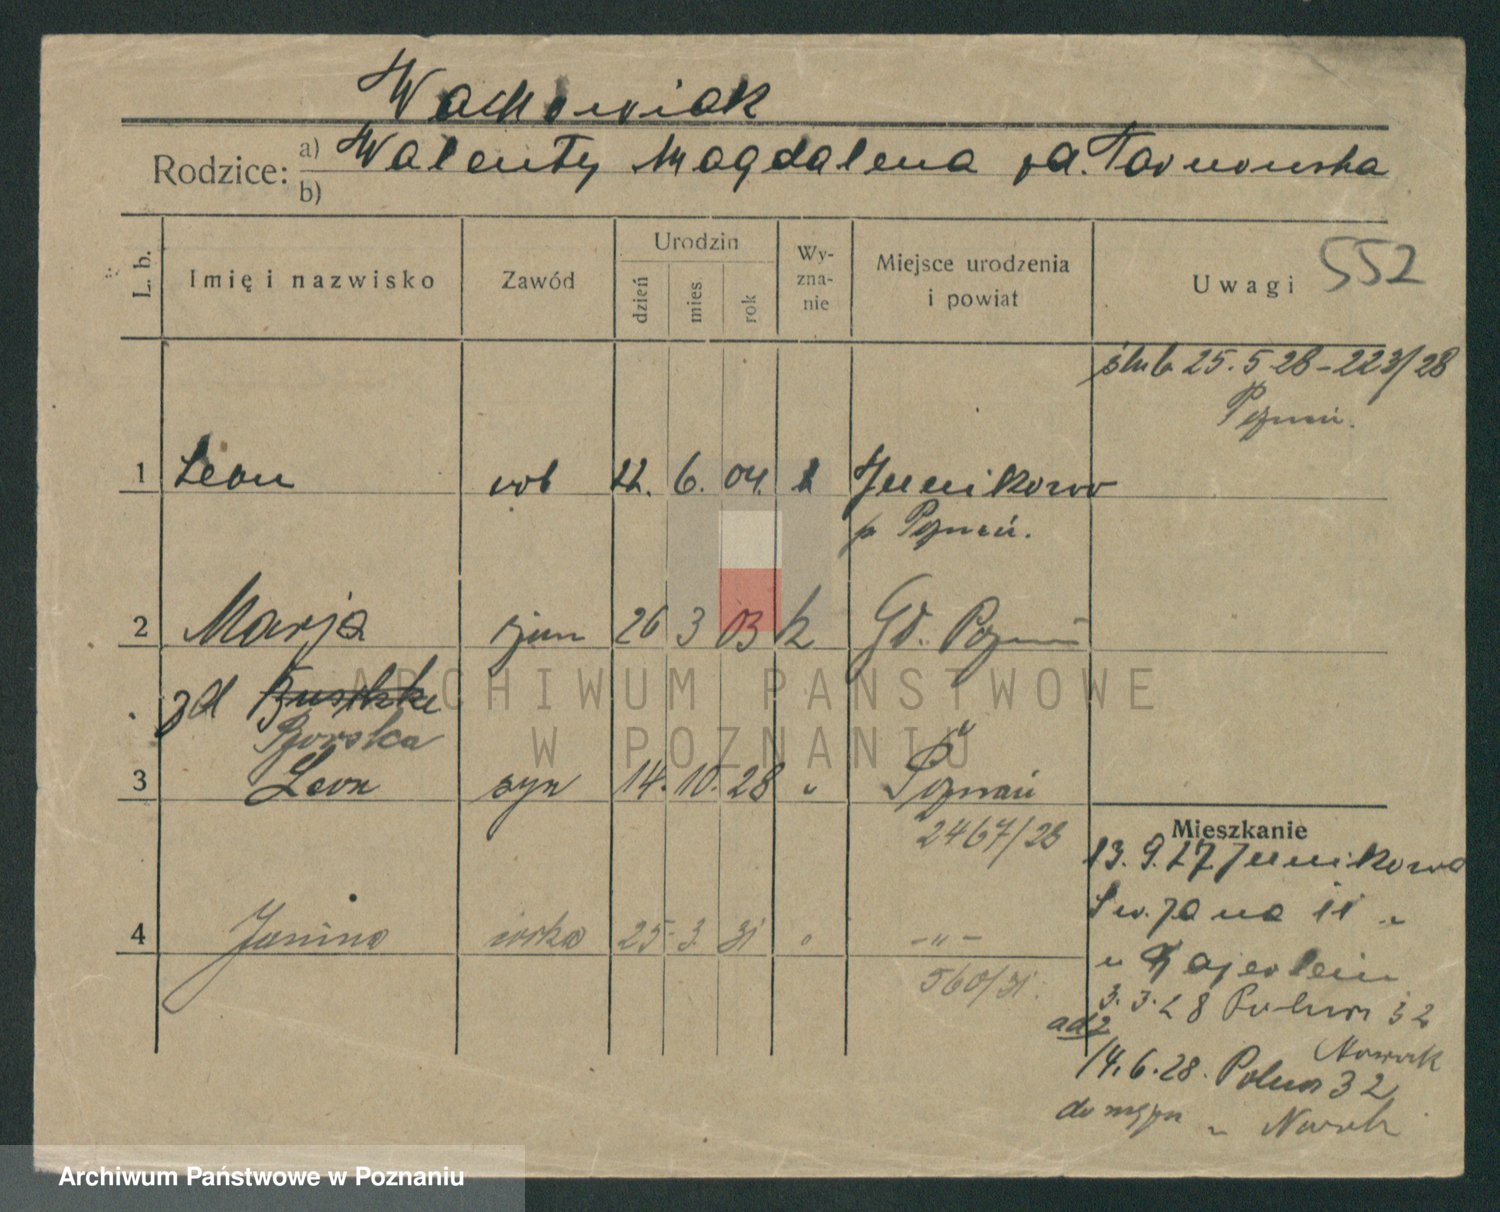 Wachowiak
Rodzice: a) Walenty Magdalena zd. Tarnowska
b)
L. b. Imię i nazwisko Zawód Urodzin dzień mies rok Wy-zna-nie Miejsce urodzenia i powiat Uwagi 552
ślub 25.5 28 - 223/28
Poznań.
1 Leon rob 22. 6. 04. k Junikowo
p Poznań.
2 Marja żona 26 3 03 k Gd. Poznań
zd
Gorska
3 Leon syn 14. 10. 28 " Poznań
2467/28
Mieszkanie
13. 9. 27 Junikowo
Św. Jana 11
4 Janina córka 25 3. 31 " - " -
u
560/31.
3. 3. 28 Polna 32
ad 2
Nowak
14. 6. 28. Polna 32
do męża " Nowak
ARCHIWUM PAŃSTWOWE
W POZNANIU
Archiwum Państwowe w Poznaniu